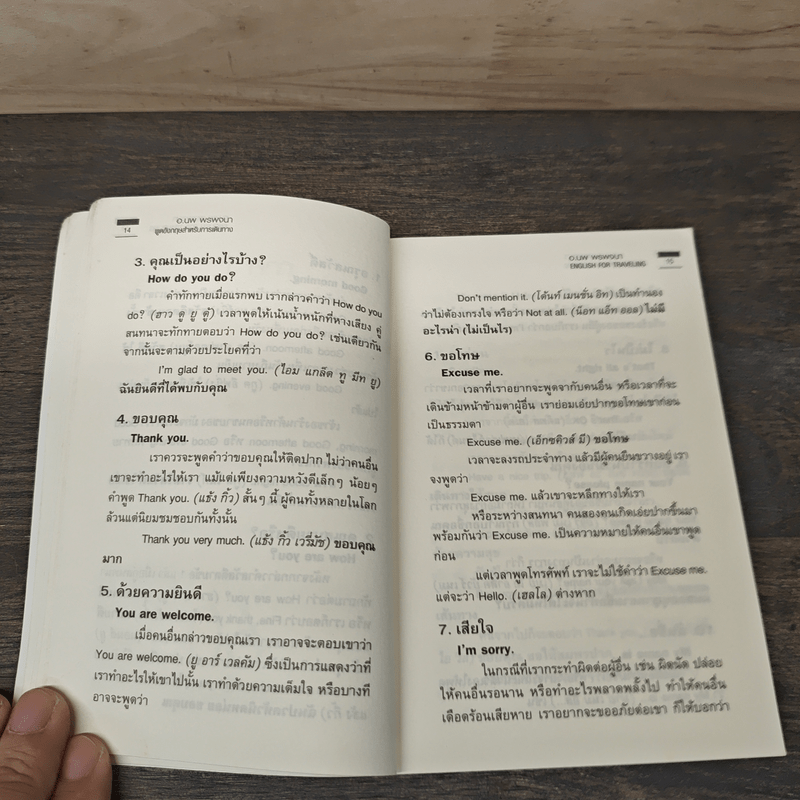 อ.นพ พรพจนา
14 พูดอังกฤษสำหรับการเดินทาง
3. คุณเป็นอย่างไรบ้าง?
How do you do?
คำทักทายเมื่อแรกพบ เรากล่าวคำว่า How do you
do? (ฮาว ดู ยู ดู๋) เวลาพูดให้เน้นน้ำหนักที่หางเสียง คู่
สนทนาจะทักทายตอบว่า How do you do? เช่นเดียวกัน
จากนั้นจะตามด้วยประโยคที่ว่า
I'm glad to meet you. (ไอม แกล็ด ทู มีท ยู)
ฉันยินดีที่ได้พบกับคุณ
4. ขอบคุณ
Thank you.
เราควรจะพูดคำว่าขอบคุณให้ติดปาก ไม่ว่าคนอื่น
เขาจะทำอะไรให้เรา แม้แต่เพียงความหวังดีเล็กๆ น้อยๆ
คำพูด Thank you. (แธ้ง กิ้ว) สั้นๆ นี้ ผู้คนทั้งหลายในโลก
ล้วนแต่นิยมชมชอบกันทั้งนั้น
Thank you very much. (แธ้ง กิ้ว เวรี่มัช) ขอบคุณ
มาก
5. ด้วยความยินดี
You are welcome.
เมื่อคนอื่นกล่าวขอบคุณเรา เราอาจจะตอบเขาว่า
You are welcome. (ยู อาร์ เวลคัม) ซึ่งเป็นการแสดงว่าที่
เราทำอะไรให้เขาไปนั้น เราทำด้วยความเต็มใจ หรือบางที
อาจจะพูดว่า
อ.นพ พรพจนา
ENGLISH FOR TRAVELING 15
Don't mention it. (โด้นท์ เมนชั่น อิท) เป็นทำนอง
ว่าไม่ต้องเกรงใจ หรือว่า Not at all. (น็อท แอ็ท ออล) ไม่มี
อะไรน่า (ไม่เป็นไร)
6. ขอโทษ
Excuse me.
เวลาที่เราอยากจะพูดจากับคนอื่น หรือเวลาที่จะ
เดินข้ามหน้าข้ามตาผู้อื่น เราย่อมเอ่ยปากขอโทษเขาก่อน
เป็นธรรมดา
Excuse me. (เอ๊กซคิวส์ มี) ขอโทษ
เวลาจะลงรถประจำทาง แล้วมีผู้คนยืนขวางอยู่ เรา
จงพูดว่า
Excuse me. แล้วเขาจะหลีกทางให้เรา
หรือระหว่างสนทนา คนสองคนเกิดเอ่ยปากขึ้นมา
พร้อมกันว่า Excuse me. เป็นความหมายให้คนอื่นเขาพูด
ก่อน
แต่เวลาพูดโทรศัพท์ เราจะไม่ใช้คำว่า Excuse me.
แต่จะว่า Hello. (เฮลโล) ต่างหาก
7. เสียใจ
I'm sorry.
ในกรณีที่เรากระทำผิดต่อผู้อื่น เช่น ผิดนัด ปล่อย
ให้คนอื่นรอนาน หรือทำอะไรพลาดพลั้งไป ทำให้คนอื่น
เดือดร้อนเสียหาย เราอยากจะขออภัยต่อเขา ก็ให้บอกว่า